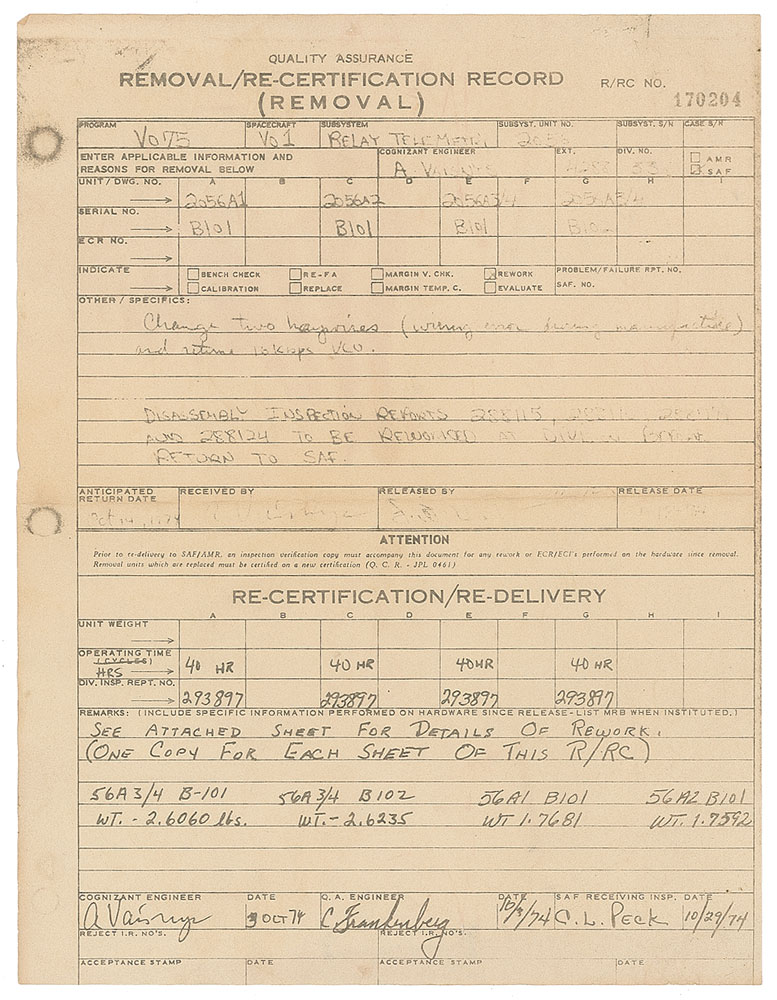 QUALITY ASSURANCE
REMOVAL/RE-CERTIFICATION RECORD
(REMOVAL)
R/RC NO.
170204
PROGRAM SPACECRAFT SUBSYSTEM SUBSYST. UNIT NO. SUBSYST. S/N CASE S/N
VO75 VO1 RELAY TELEMETRY
ENTER APPLICABLE INFORMATION AND REASONS FOR REMOVAL BELOW
COGNIZANT ENGINEER EXT. DIV. NO.
A VAISNYS
AMR
SAF
UNIT / DWG. NO. A B C D E F G H I
2056A1 2056A2 2056A3/4 2056A3/4
SERIAL NO.
B101 B101 B101
ECR NO.
INDICATE BENCH CHECK RE-FA MARGIN V. CHK. REWORK PROBLEM/FAILURE RPT. NO.
CALIBRATION REPLACE MARGIN TEMP. C. EVALUATE SAF. NO.
OTHER / SPECIFICS:
Change two haywires (wiring error during manufacture)
and retune VCO.
DISASSEMBLY INSPECTION REPORTS 288115,
AND 288124 TO BE REWORKED AT DIVISION BEFORE
RETURN TO SAF.
ANTICIPATED RETURN DATE RECEIVED BY RELEASED BY RELEASE DATE
Oct 14, 1974
ATTENTION
Prior to re-delivery to SAF/AMR, an inspection verification copy must accompany this document for any rework or ECR/ECI's performed on the hardware since removal.
Removal units which are replaced must be certified on a new certification (Q. C. R. - JPL 0461)
RE-CERTIFICATION/RE-DELIVERY
A B C D E F G H I
UNIT WEIGHT
OPERATING TIME
(CYCLES)
HRS 40 HR 40 HR 40HR 40 HR
DIV. INSP. REPT. NO.
293897 293897 293897 293897
REMARKS: (INCLUDE SPECIFIC INFORMATION PERFORMED ON HARDWARE SINCE RELEASE-LIST MRB WHEN INSTITUTED.)
SEE ATTACHED SHEET FOR DETAILS OF REWORK.
(ONE COPY FOR EACH SHEET OF THIS R/RC)
56A 3/4 B-101 56A 3/4 B102 56A1 B101 56A2 B101
WT. - 2.6060 lbs. WT. - 2.6235 WT 1.7681 WT. 1.7592
COGNIZANT ENGINEER DATE Q. A. ENGINEER DATE SAF RECEIVING INSP. DATE
A Vaisnys 3 OCT 74 C. Frankenberg 10/3/74 C. L. PECK 10/29/74
REJECT I.R. NO'S. REJECT I.R. NO'S.
ACCEPTANCE STAMP DATE ACCEPTANCE STAMP DATE